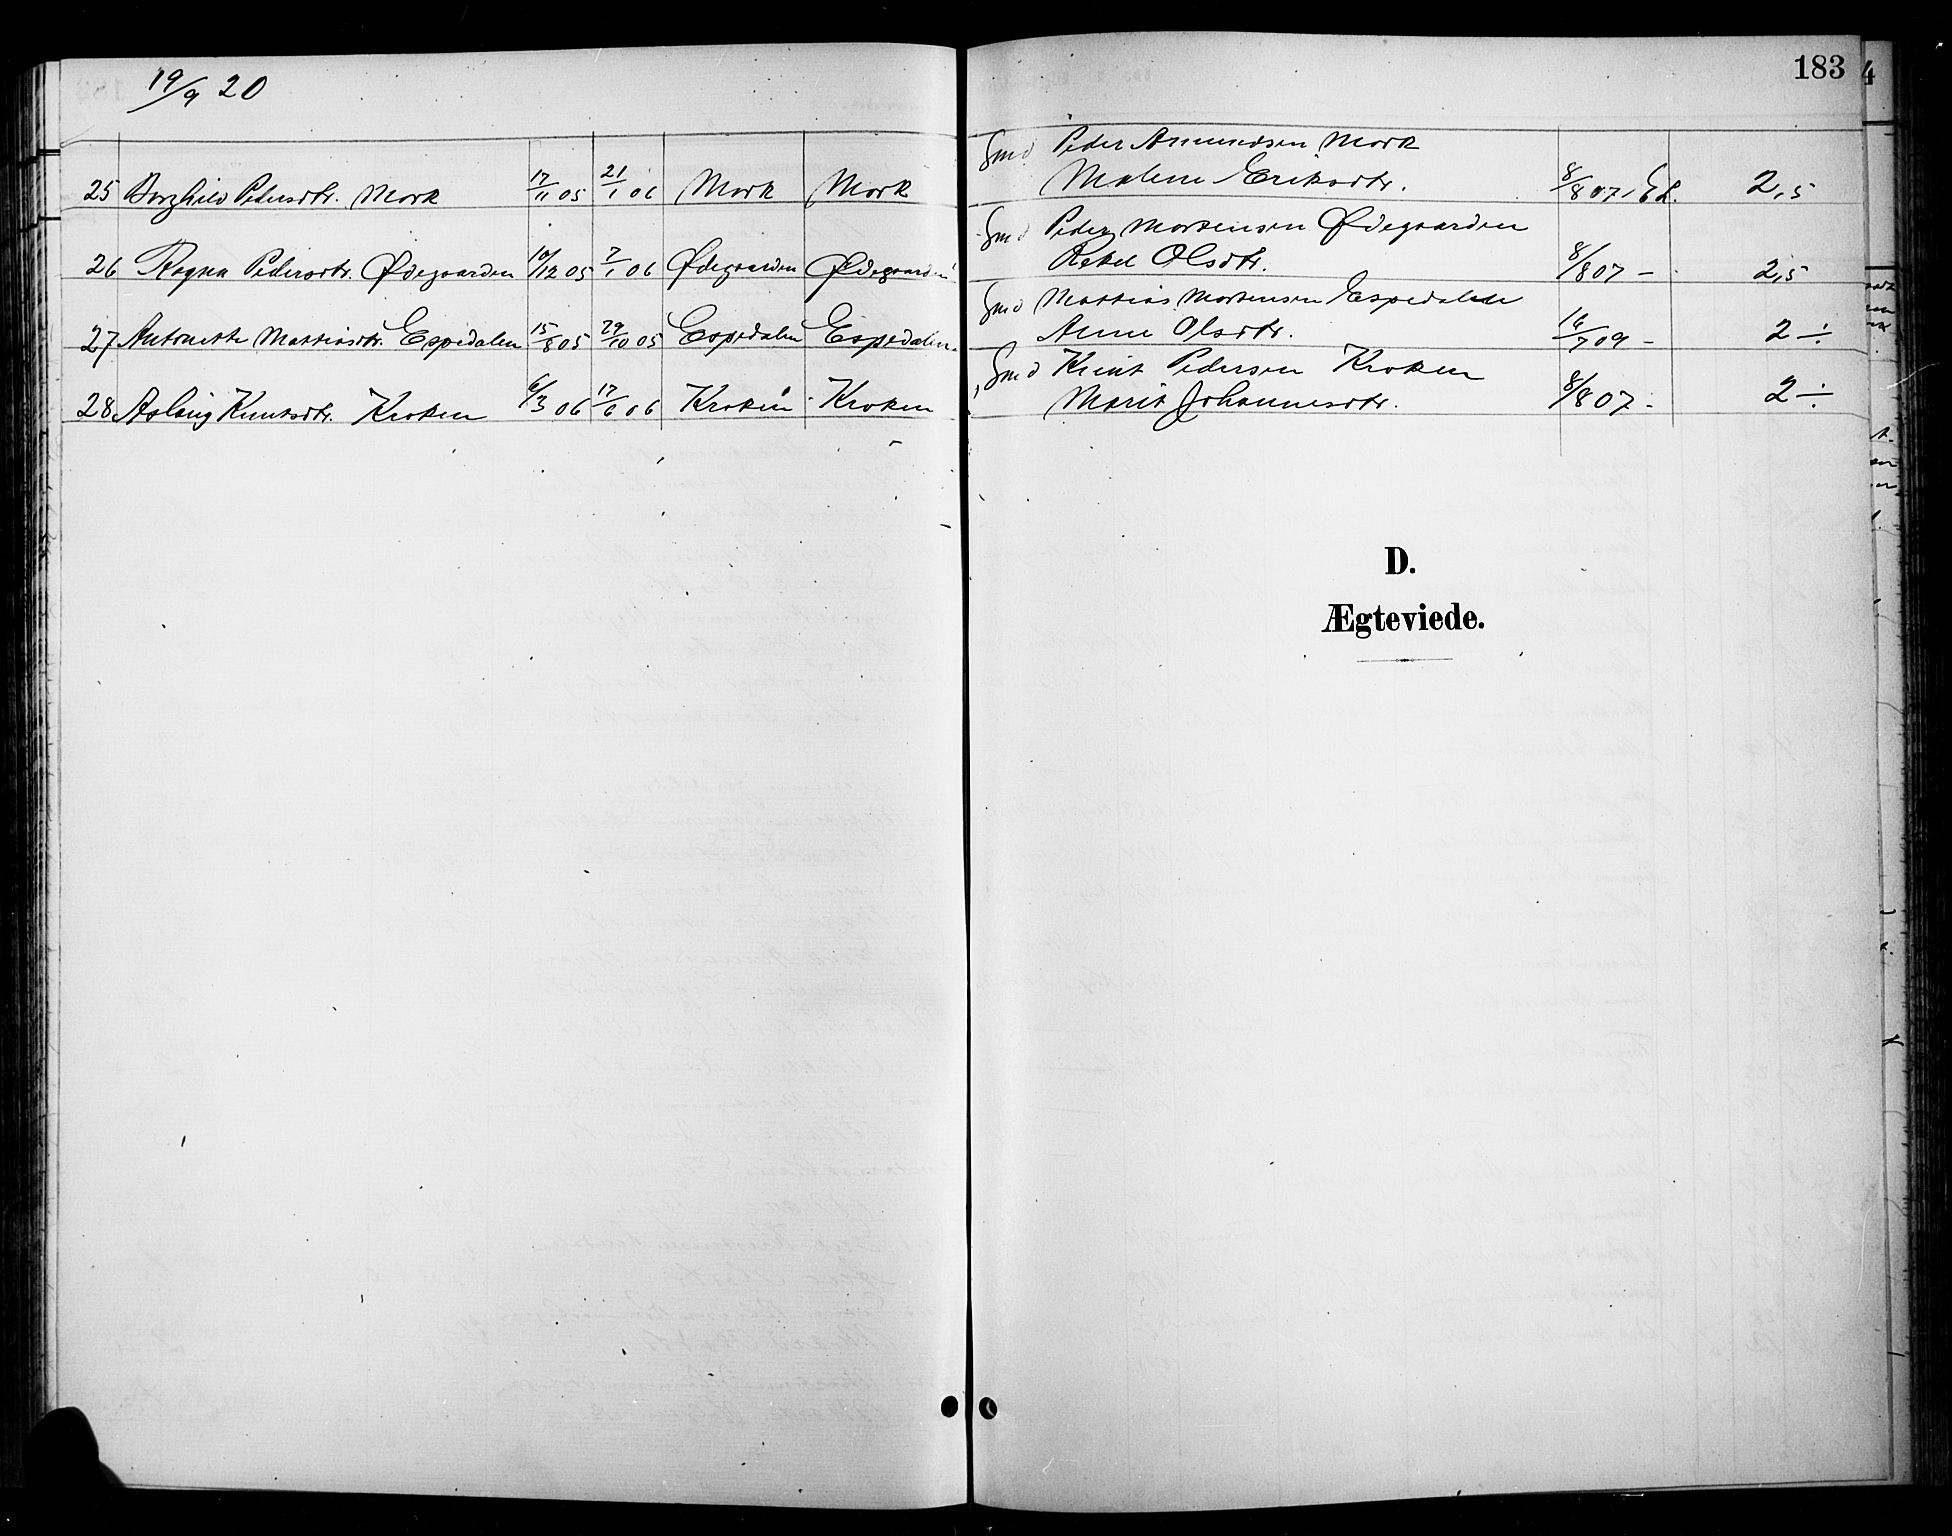 19/9 20
183
25 Borghild Pedersdtr. Mork 17/11 05 21/1 06 Mork Mork
Gmd Peder Asmundsen Mork
Malene Eriksdtr. 8/8 07, EL. 2,5
26 Ragna Pedersdtr. Ødegaarden 10/12 05 7/1 06 Ødegaarden Ødegaarden
Gmd Peder Mortensen Ødegaarden
Rakel Olsdtr. 8/8 07 – 2,5
27 Antonette Mattiasdtr. Espedalen 15/8 05 29/10 05 Espedalen Espedalen
Gmd Mattias Mortensen Espedalen
Anne Olsdtr. 16/7 09 – 2 ÷
28 Aslaug Knutsdtr. Kroken 6/3 06 17/6 06 Kroken Kroken
Gmd Knut Pedersen Kroken
Marit Johannesdtr. 8/8 07 – 2 ÷
D.
Ægteviede.